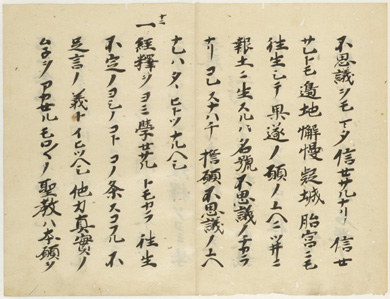 不思議ヲモマタ信セサルナリ信セ
サレトモ邊地懈慢疑城胎宮ニモ
往生シテ果遂ノ願ノユヘニツヰニ
報土ニ生スルハ名號不思議ノチカラ
ナリコレスナハチ誓願不思議ノユヘ
ナレハタヽヒトツナルヘシ
十二
一 經釋ヲヨミ學セサルトモカラ往生
不定ノヨシノコトコノ条スコフル不
足言ノ義トイヒツヘシ他力真實ノ
ムネヲアカセルモロ〱ノ聖教ハ本願ヲ